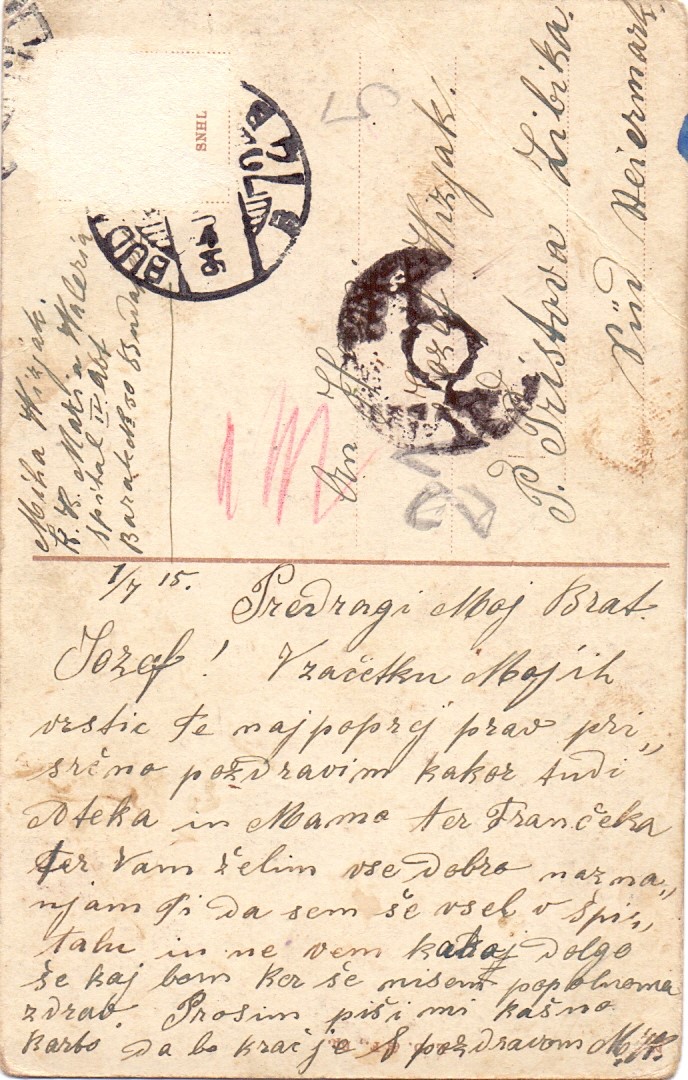 SNHL
BUD
Miha Hižjak.
K. K. Marija Valeria
spital IV. Abt
Barake
An
Hižjak.
P. Pristova Libika.
Süd Steiermark
1/7 15. Predragi Moj Brat
Jozef! Vzačetku Mojih
vrstic te najpoprej prav pri„
srčno pozdravim kakor tudi
Ateka in Mamo ter Frančeka
ter Vam želim vse dobro nazna„
njam ti da sem še vsel v špi„
talu in ne vem dolgo
še kaj bom ker še nisem popolnoma
zdrav. Prosim piši mi kašno
karto da bo kračje S pozdravom M. H